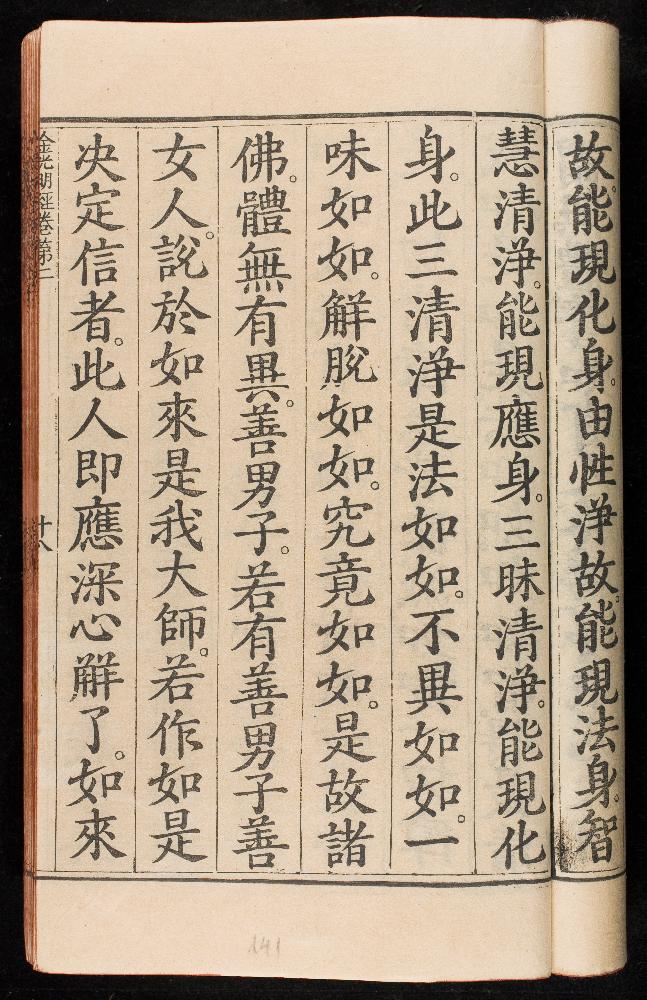 故能現化身。由性淨故。能現法身。智
慧清淨。能現應身。三昧清淨。能現化
身。此三清淨是法如如。不異如如。一
味如如。解脫如如。究竟如如。是故諸
佛。體無有異。善男子。若有善男子善
女人。說於如來是我大師。若作如是
决定信者。此人即應深心解了。如來
金光明經卷第二
十八
141